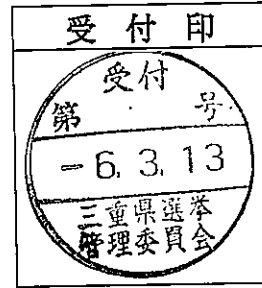 受付印
受付
第 号
-6.3.13
三重県選挙
管理委員会